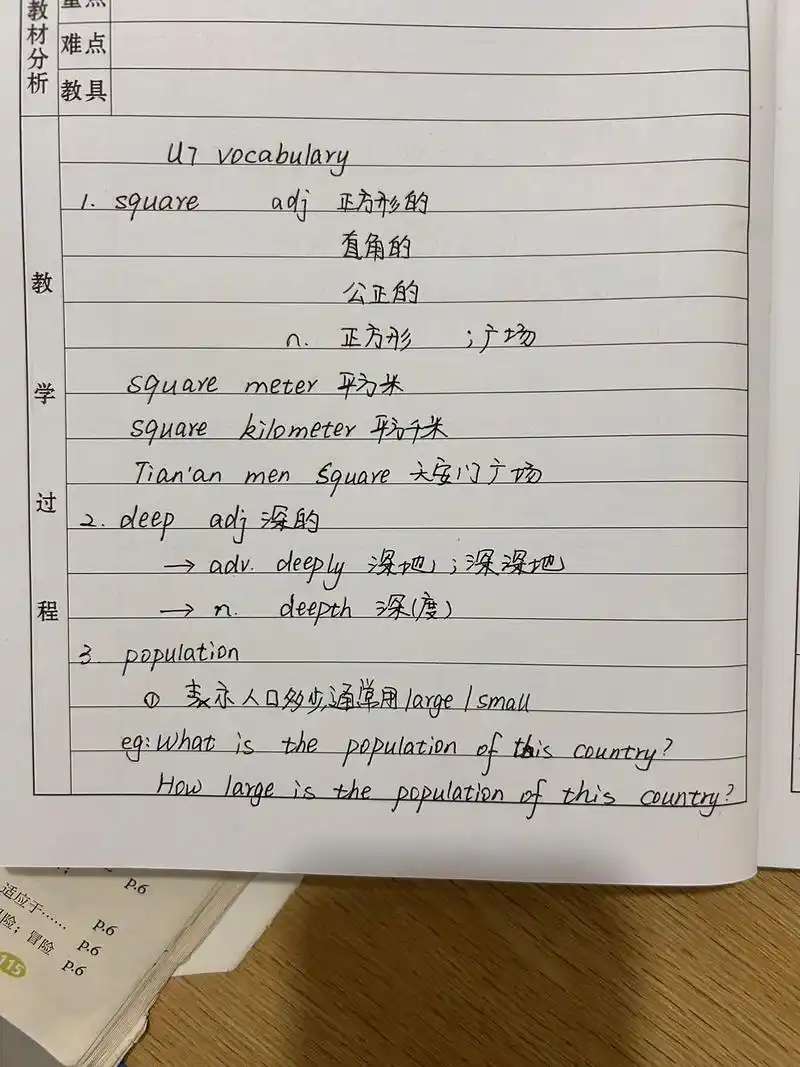 教材分析
重点
难点
教具
教学过程
U7 vocabulary
1. square adj 正方形的
直角的
公正的
n. 正方形 ;广场
square meter 平方米
square kilometer 平方千米
Tian'an men Square 天安门广场
2. deep adj 深的
→ adv. deeply 深地;深深地
→ n. deepth 深(度)
3. population
① 表示人口多少,通常用large / small
eg: What is the population of this country?
How large is the population of this country?
P.6
适应于…… P.6
P.6
险; 冒险 P.6
115